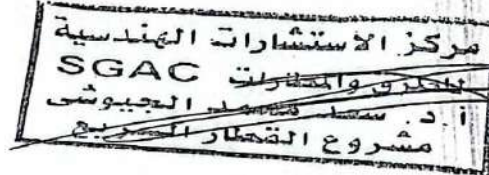 مركز الاستشارات الهندسية
للطرق والمطارات SGAC
ا.د. سعد محمد الجيوشى
مشروع القطار السريع